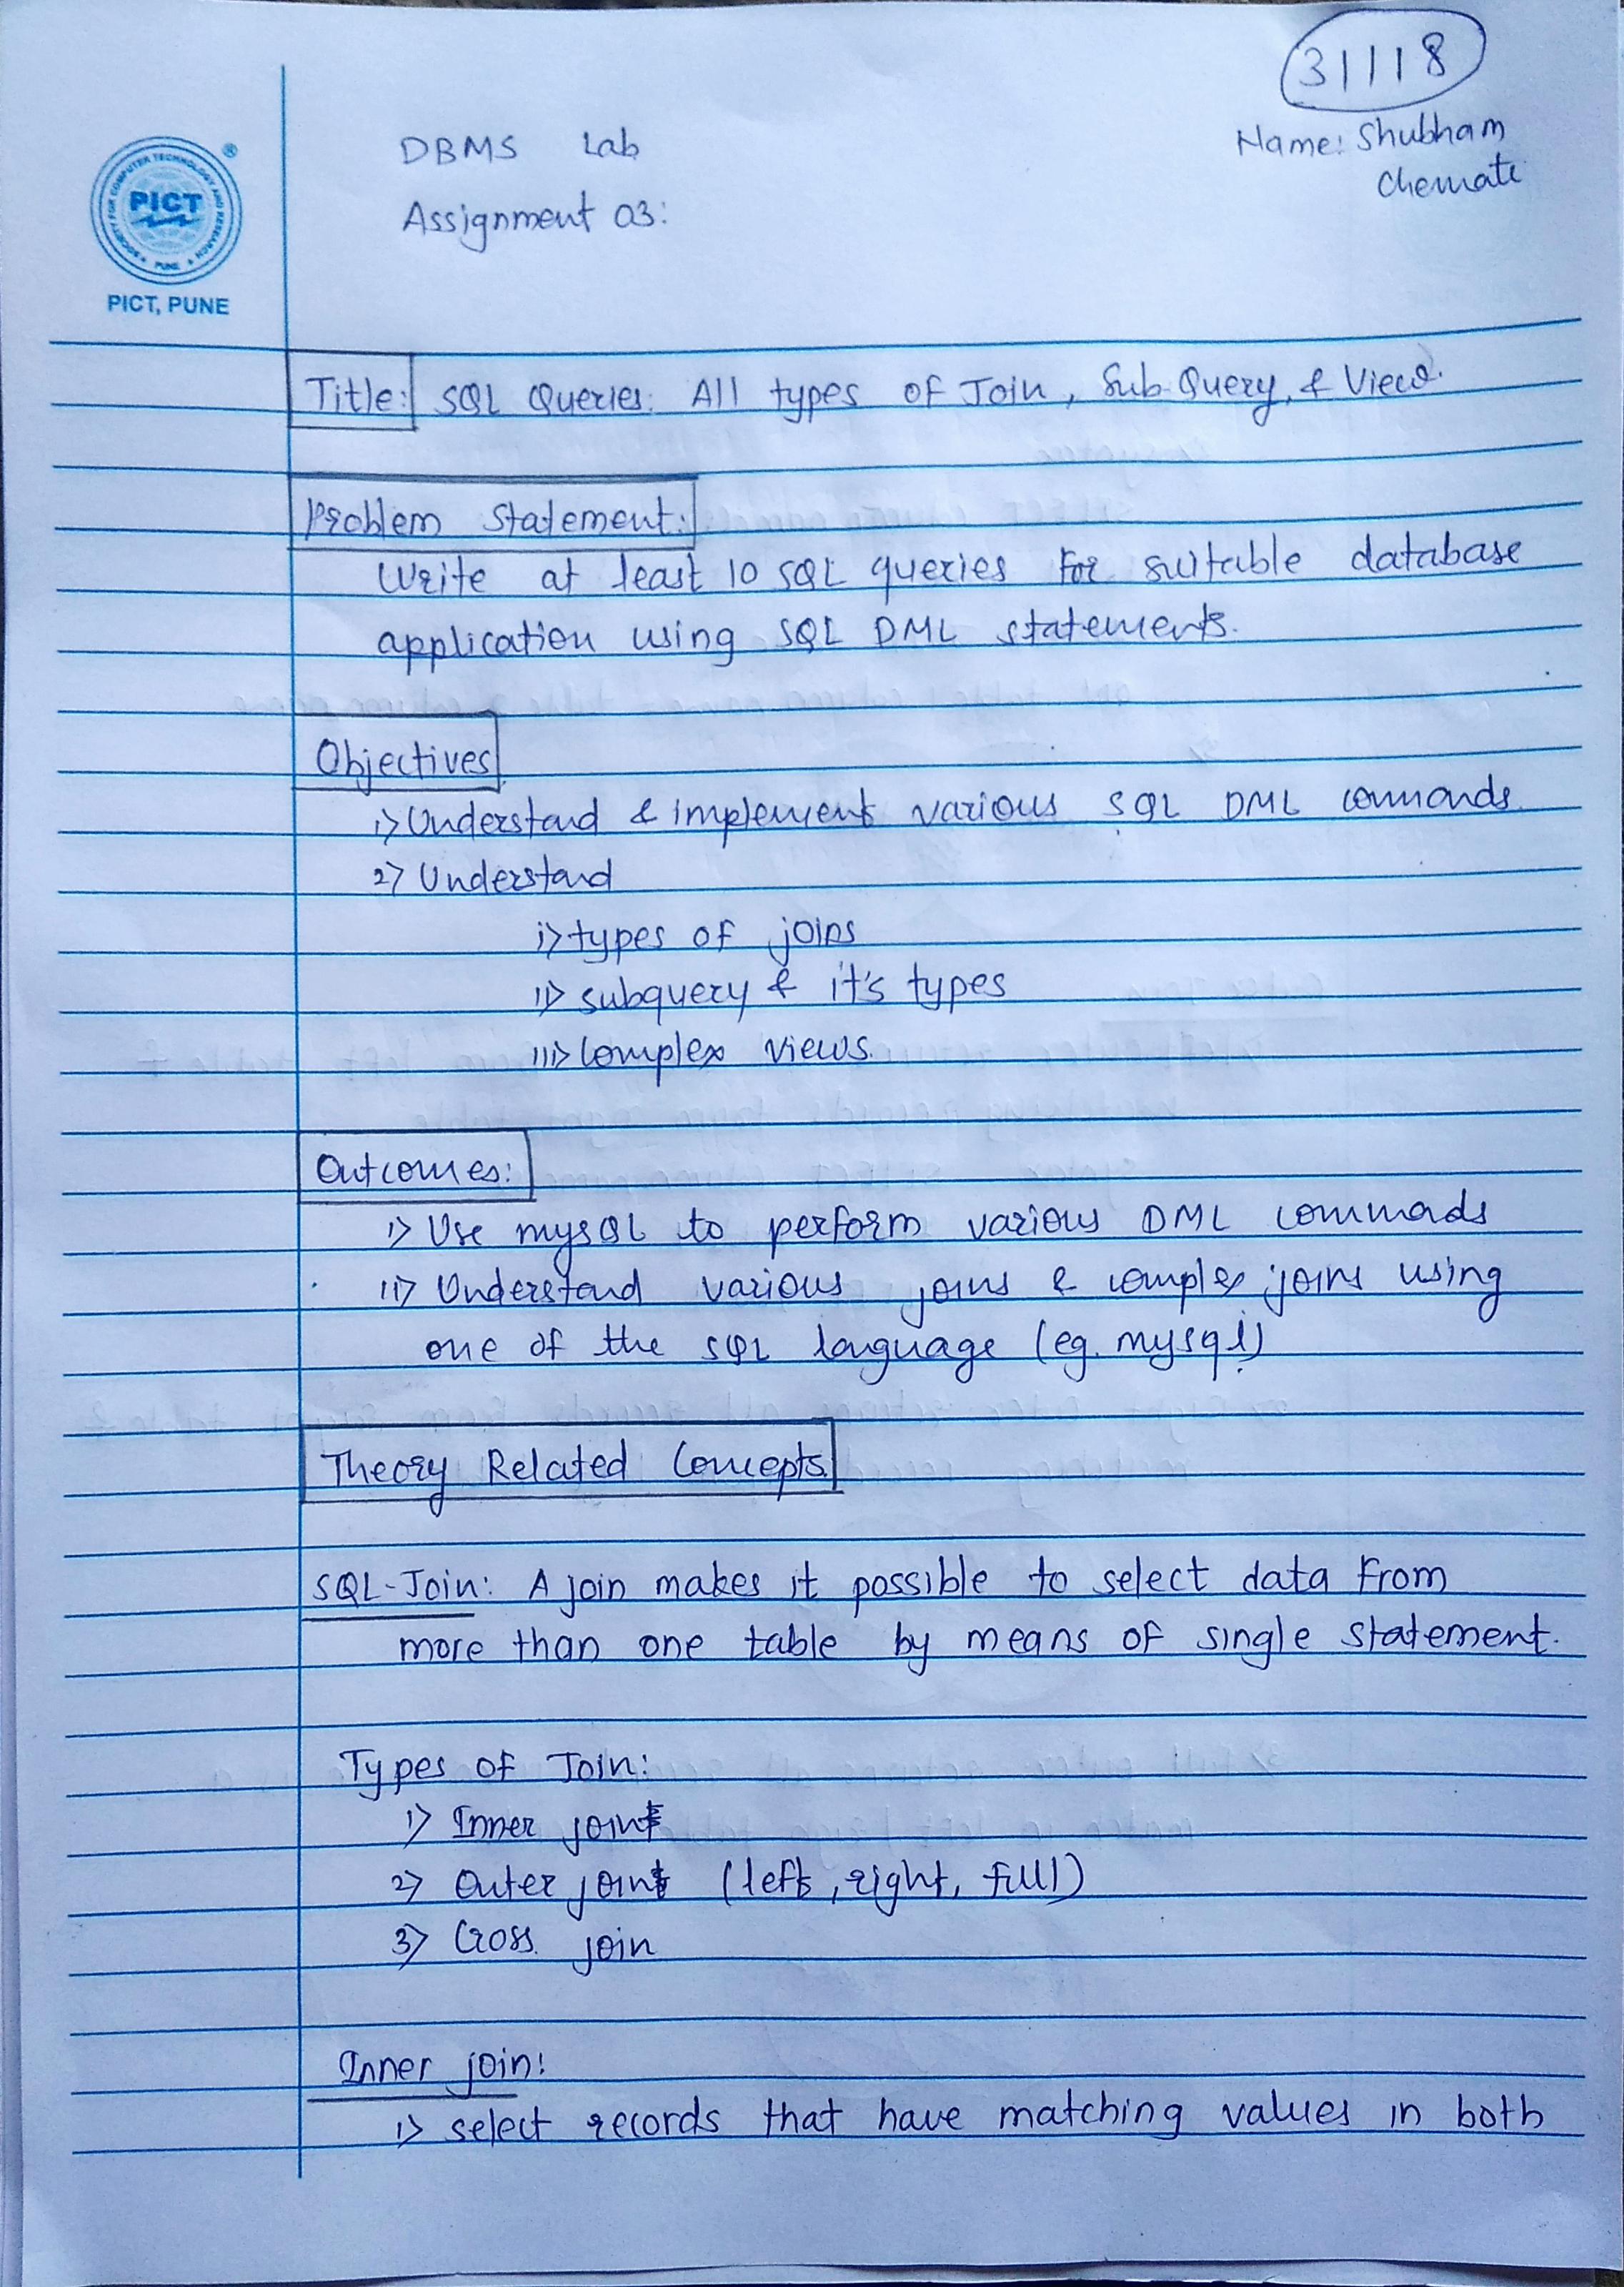 31118
Name: Shubham
Chemate
DBMS Lab
Assignment 03:
SOCIETY FOR COMPUTER TECHNOLOGY AND RESEARCH
PUNE
PICT
®
PICT, PUNE
Title: SQL Queries: All types of Join, Sub Query, & View.
Problem Statement:
Write at least 10 SQL queries for suitable database
application using SQL DML statements.
Objectives
1> Understand & implement various SQL DML commands.
2> Understand
i> types of joins
ii> subquery & it's types
iii> Complex views.
Outcomes:
i> Use mysql to perform various DML commads
ii> Understand various joins & complex joins using
one of the SQL language (eg. mysql)
Theory Related Concepts
SQL-Join: A join makes it possible to select data from
more than one table by means of single statement.
Types of Join:
1> Inner join
2> Outer join (left, right, full)
3> Cross join
Inner join:
1> select records that have matching values in both